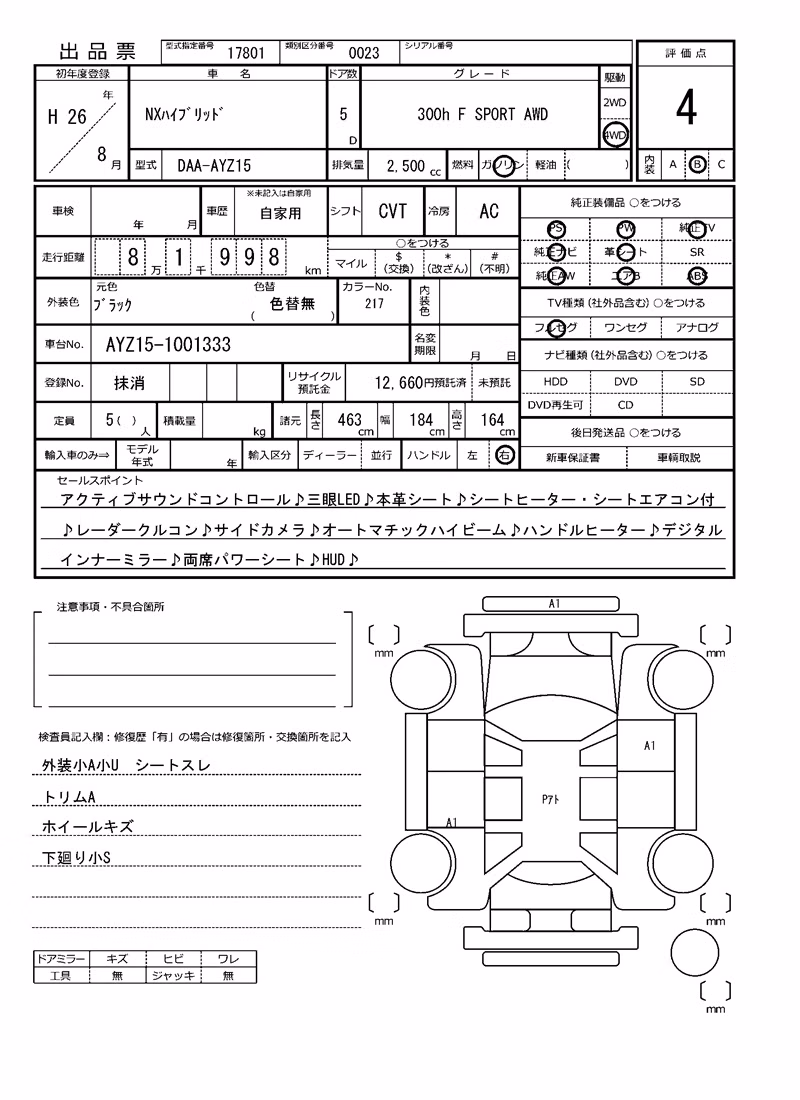 出品票 型式指定番号 17801 類別区分番号 0023 シリアル番号
評価点
4
内装 A B C
初年度登録 車 名 ドア数 グレード 駆動
H 26 年
8 月
NXハイブリッド 5 D 300h F SPORT AWD 2WD
4WD
型式 DAA-AYZ15 排気量 2,500 cc 燃料 ガソリン 軽油 ( )
車検 年 月 車歴 ※未記入は自家用
自家用 シフト CVT 冷房 AC
走行距離 8 万 1 千 9 9 8 km
○をつける
マイル $(交換) *(改ざん) #(不明)
外装色 元色 ブラック 色替 ( 色替無 ) カラーNo. 217 内装色
車台No. AYZ15-1001333 名変期限 月 日
登録No. 抹消 リサイクル預託金 12,660円預託済 未預託
定員 5( ) 人 積載量 kg 諸元 長さ 463 cm 幅 184 cm 高さ 164 cm
輸入車のみ⇒ モデル年式 年 輸入区分 ディーラー 並行 ハンドル 左 右
純正装備品 ○をつける
PS PW 純正TV
純正ナビ 革シート SR
純正AW エアB ABS
TV種類(社外品含む)○をつける
フルセグ ワンセグ アナログ
ナビ種類(社外品含む)○をつける
HDD DVD SD
DVD再生可 CD
後日発送品 ○をつける
新車保証書 車輌取説
セールスポイント
アクティブサウンドコントロール♪三眼LED♪本革シート♪シートヒーター・シートエアコン付
♪レーダークルコン♪サイドカメラ♪オートマチックハイビーム♪ハンドルヒーター♪デジタル
インナーミラー♪両席パワーシート♪HUD♪
注意事項・不具合箇所
検査員記入欄：修復歴「有」の場合は修復箇所・交換箇所を記入
外装小A小U シートスレ
トリムA
ホイールキズ
下廻り小S
ドアミラー キズ ヒビ ワレ
工具 無 ジャッキ 無
A1
mm mm
A1
Pアト
A1
mm mm
mm